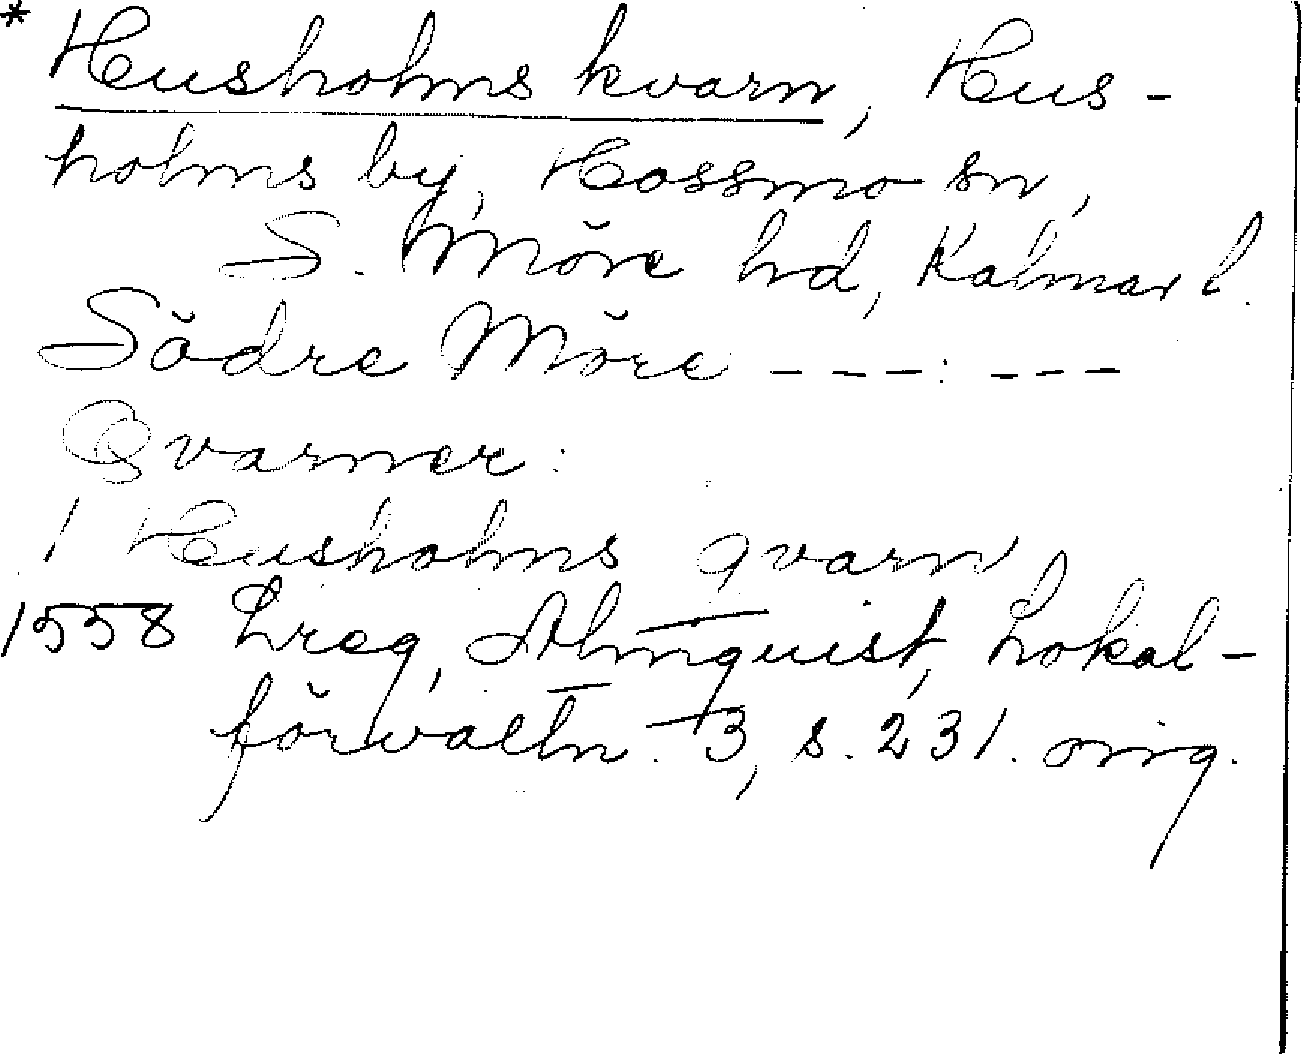 * Husholms kvarn, Hus-
holms by, Hossmo sn,
S. Möre hd, Kalmar l.
Södre Möre ---:---
Qvarner:
1 Husholms qvarn,
1558 Lreg, Almquist, Lokal-
förvaltn. 3, s. 231. orig.